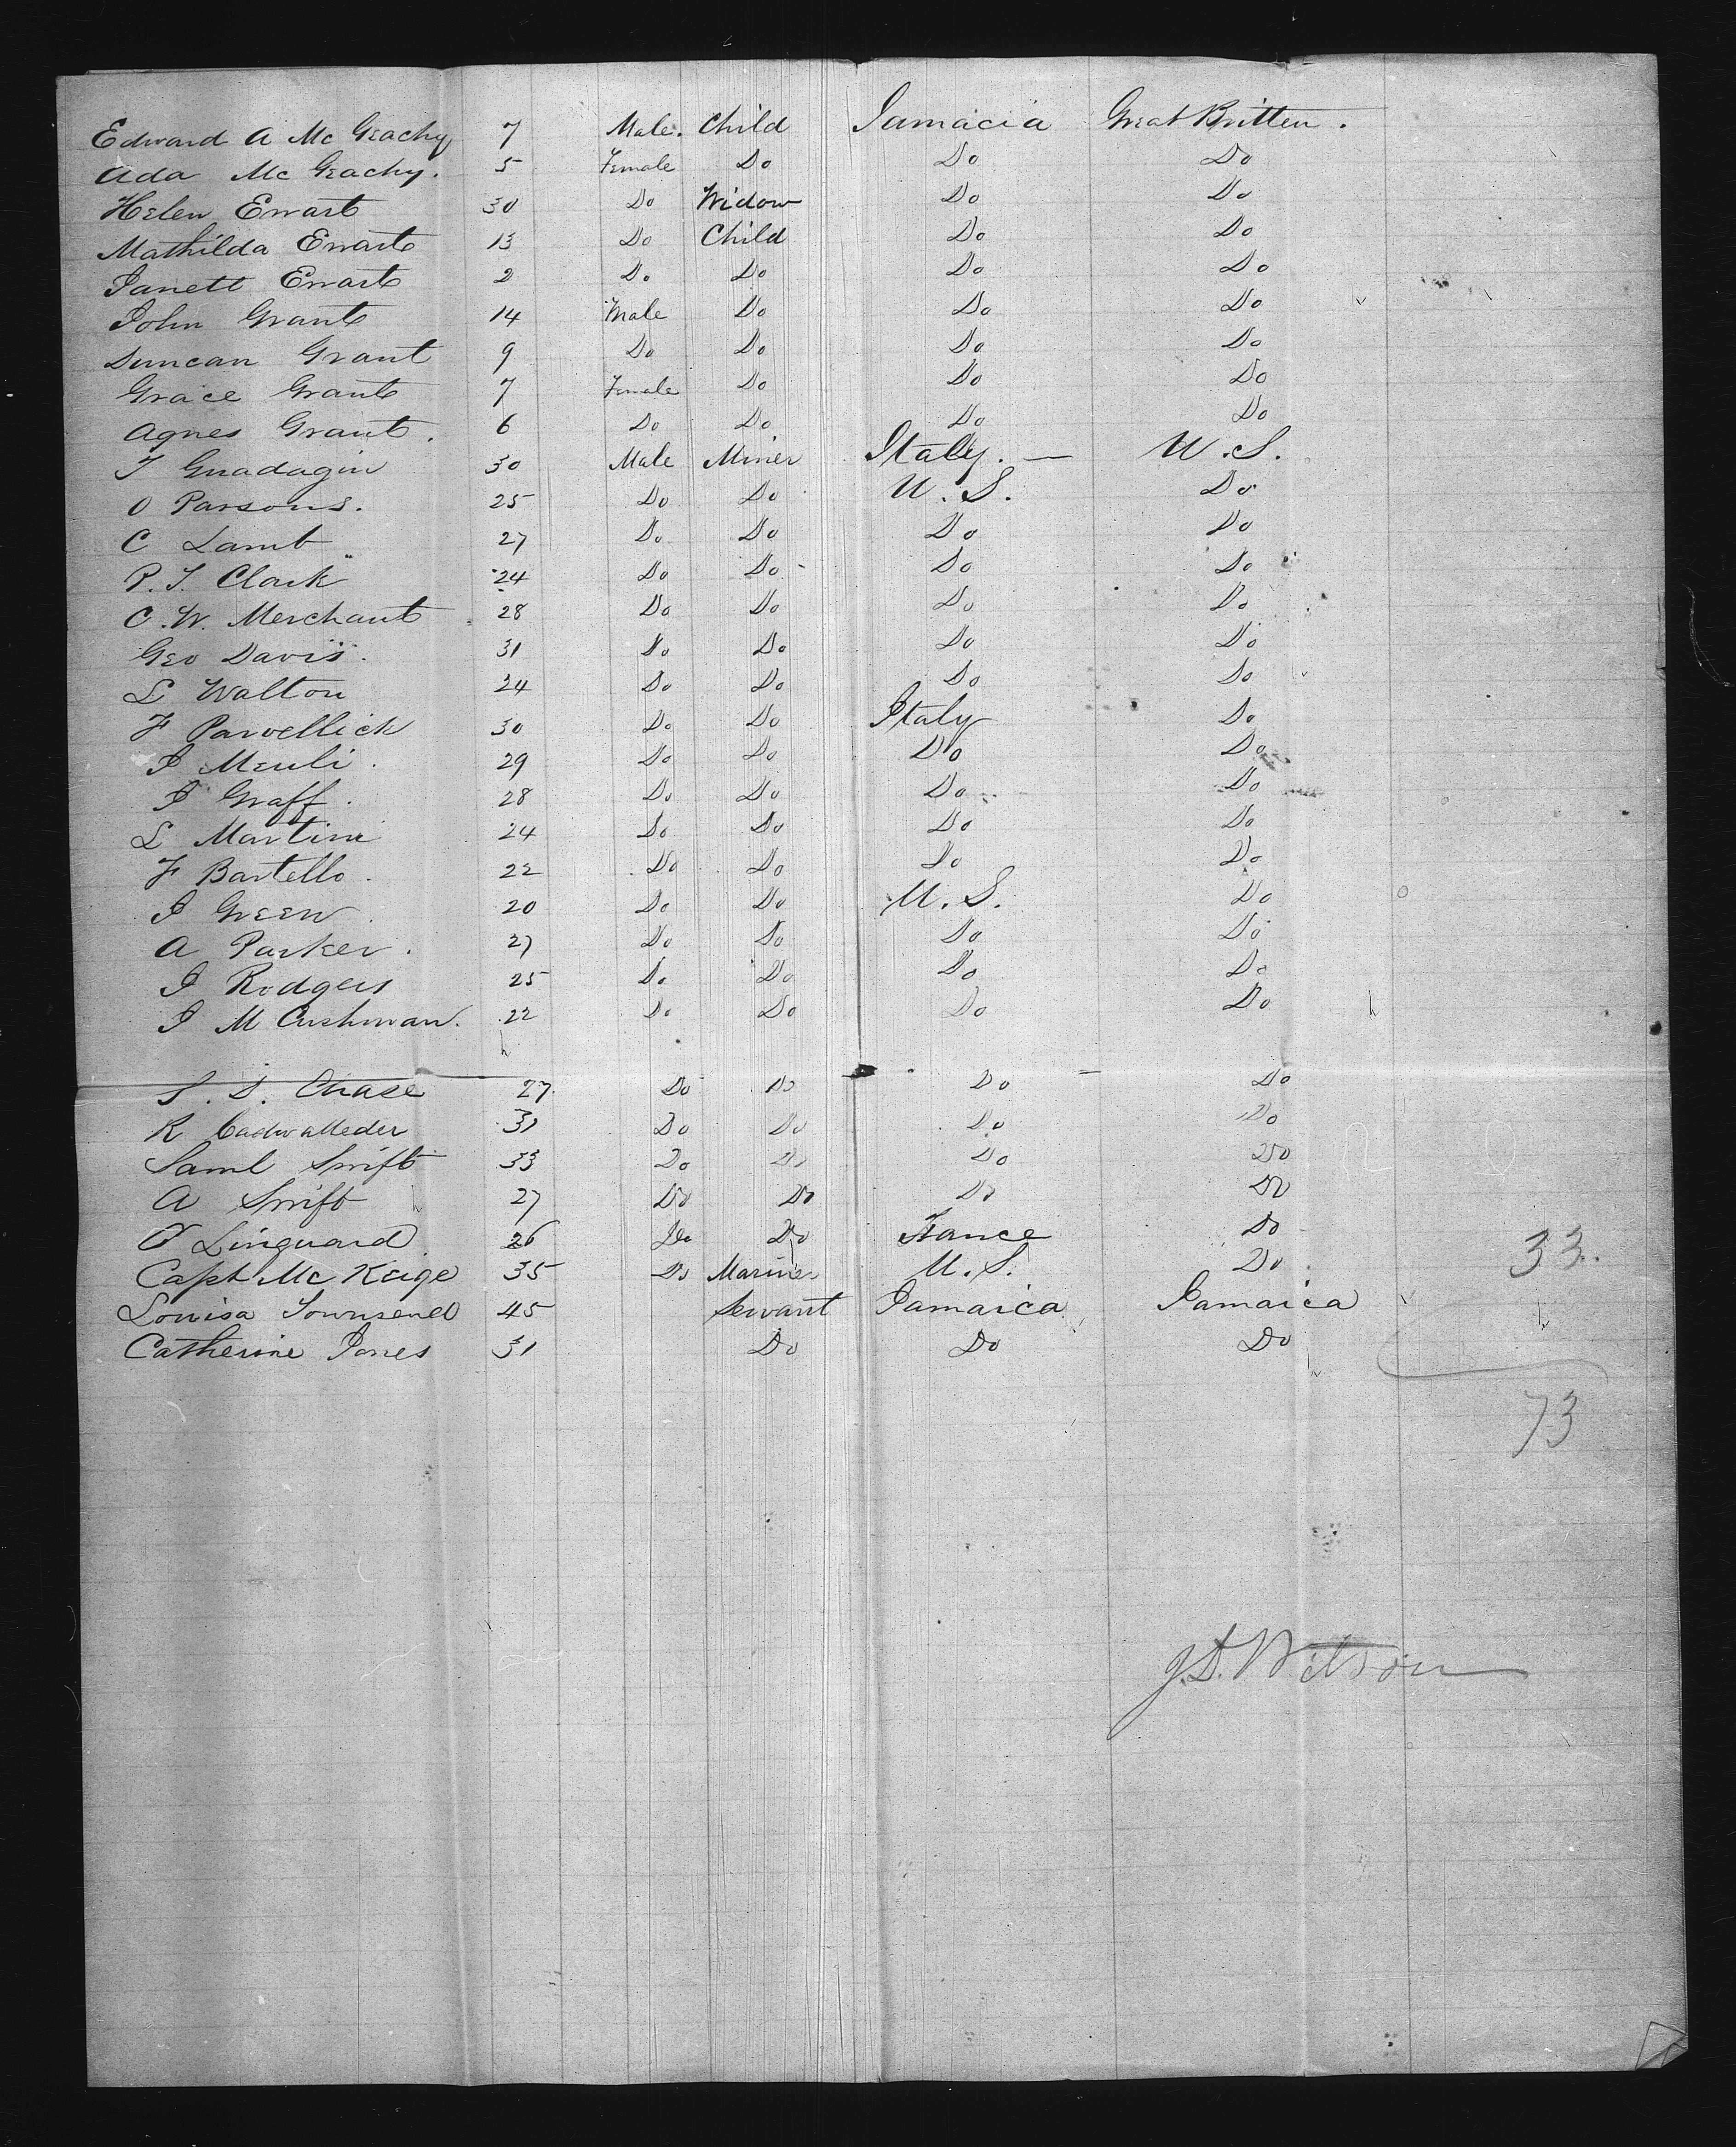 Edward A McGeachy 7 Male. Child Jamacia Great Britten.
Ada McGeachy. 5 Female Do Do Do
Helen Ewart 30 Do Widow Do Do
Mathilda Ewart 13 Do Child Do Do
Janett Ewart 2 Do Do Do Do
John Grant 14 Male Do Do Do
Duncan Grant 9 Do Do Do Do
Grace Grant 7 Female Do Do Do
Agnes Grant. 6 Do Do Do Do
Guadagin 30 Male Miner Italy. — U.S.
O Parsons. 25 Do Do U.S. Do
C Lamb 27 Do Do Do Do
P.T. Clark 24 Do Do Do Do
C.W. Merchant 28 Do Do Do Do
Geo Davis. 31 Do Do Do Do
L Walton 24 Do Do Do Do
F Parvellick 30 Do Do Italy Do
J Meuli. 29 Do Do Do Do
J Graff. 28 Do Do Do Do
L Martini 24 Do Do Do Do
F Bartello. 22 Do Do Do Do
J Green. 20 Do Do U.S. Do
A Parker. 27 Do Do Do Do
J Rodgers 25 Do Do Do Do
J M Cushman. 22 Do Do Do Do
S. S. Chase 27. Do Do Do Do
R Cadwalleder 31 Do Do Do Do
Saml Swift 33 Do Do Do Do
A Swift 27 Do Do Do Do
Linguard 26 Do Do France Do
Capt McKeige 35 Do Mariner U.S. Do 33.
Louisa Townsend 45 Servant Jamaica Jamaica
Catherine Jones 31 Do Do Do
73
J.D. Wilson